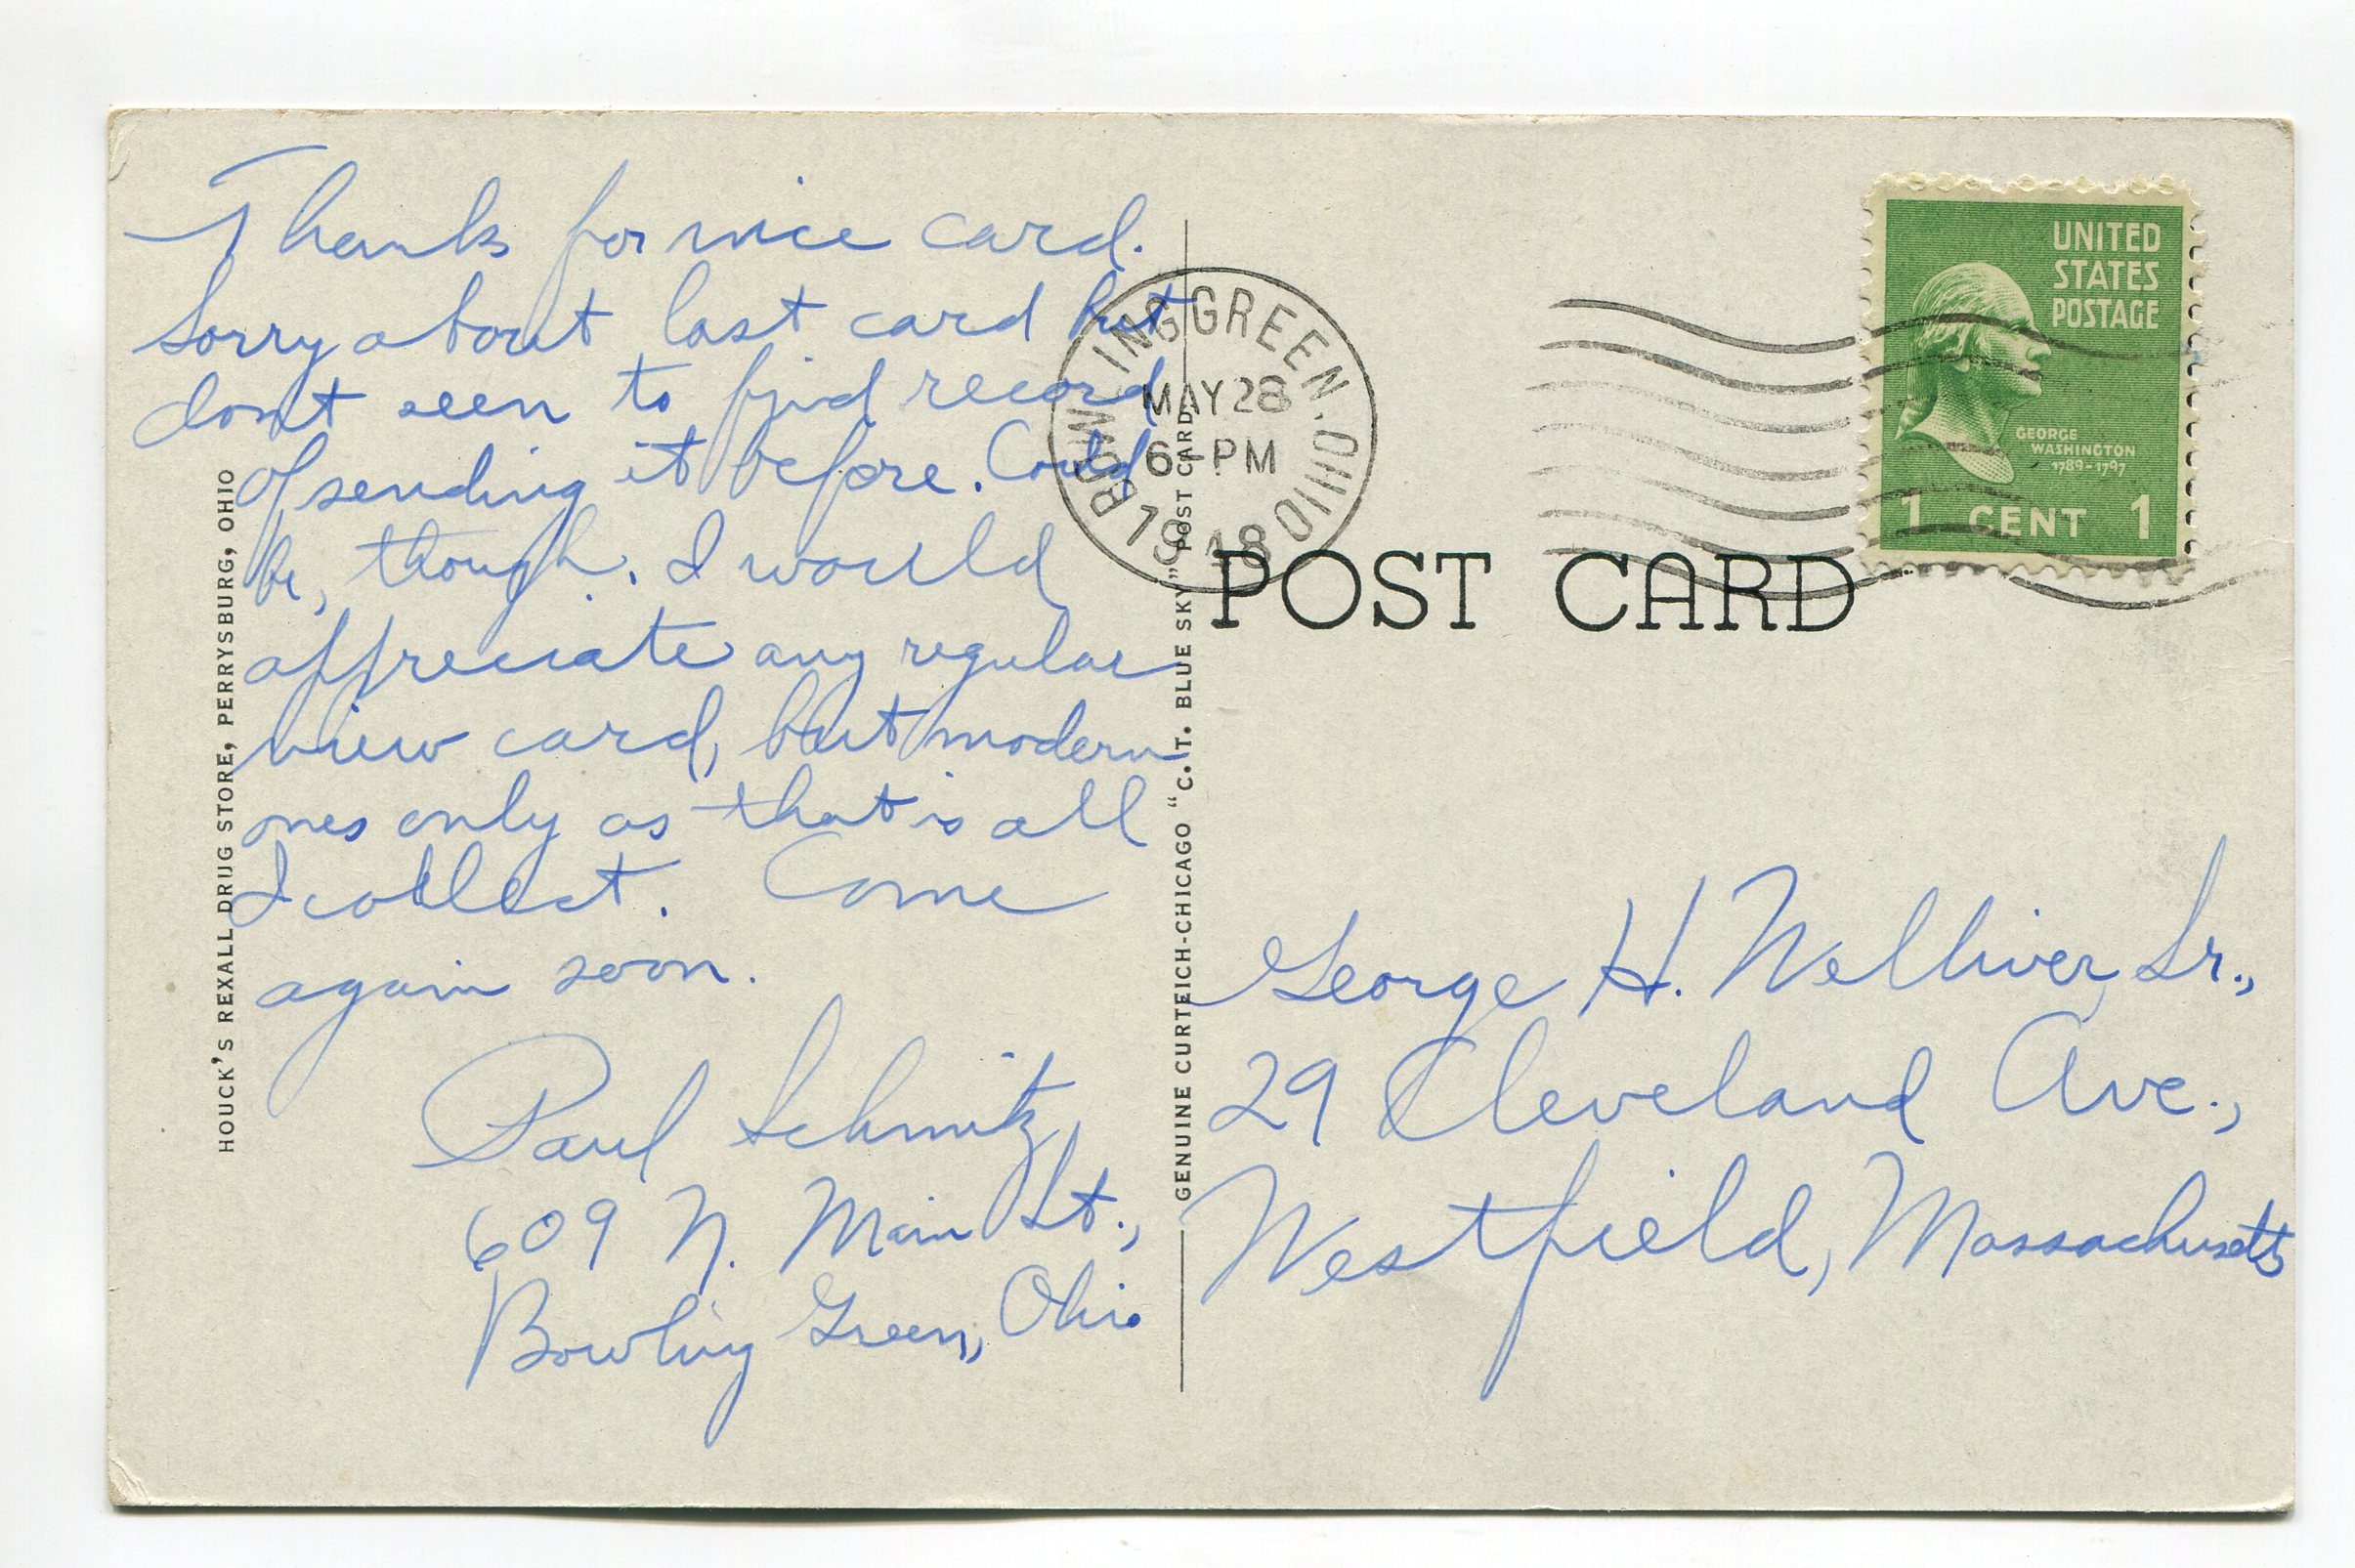 Thanks for nice card.
Sorry about last card but
dont seen to find record
of sending it before. Could
be, though. I would
appreciate any regular
view card, but modern
ones only as that is all
I collect. Come
again soon.
Paul Schmitz,
609 N. Main St.,
Bowling Green, Ohio
HOUCK'S REXALL DRUG STORE, PERRYSBURG, OHIO
GENUINE CURTEICH-CHICAGO "C. T. BLUE SKY" POST CARD
BOWLING GREEN. OHIO
MAY 28
6-PM
1948
UNITED
STATES
POSTAGE
GEORGE
WASHINGTON
1789-1797
1 CENT 1
POST CARD
George H. Welliver, Sr.,
29 Cleveland Ave.,
Westfield, Massachusetts